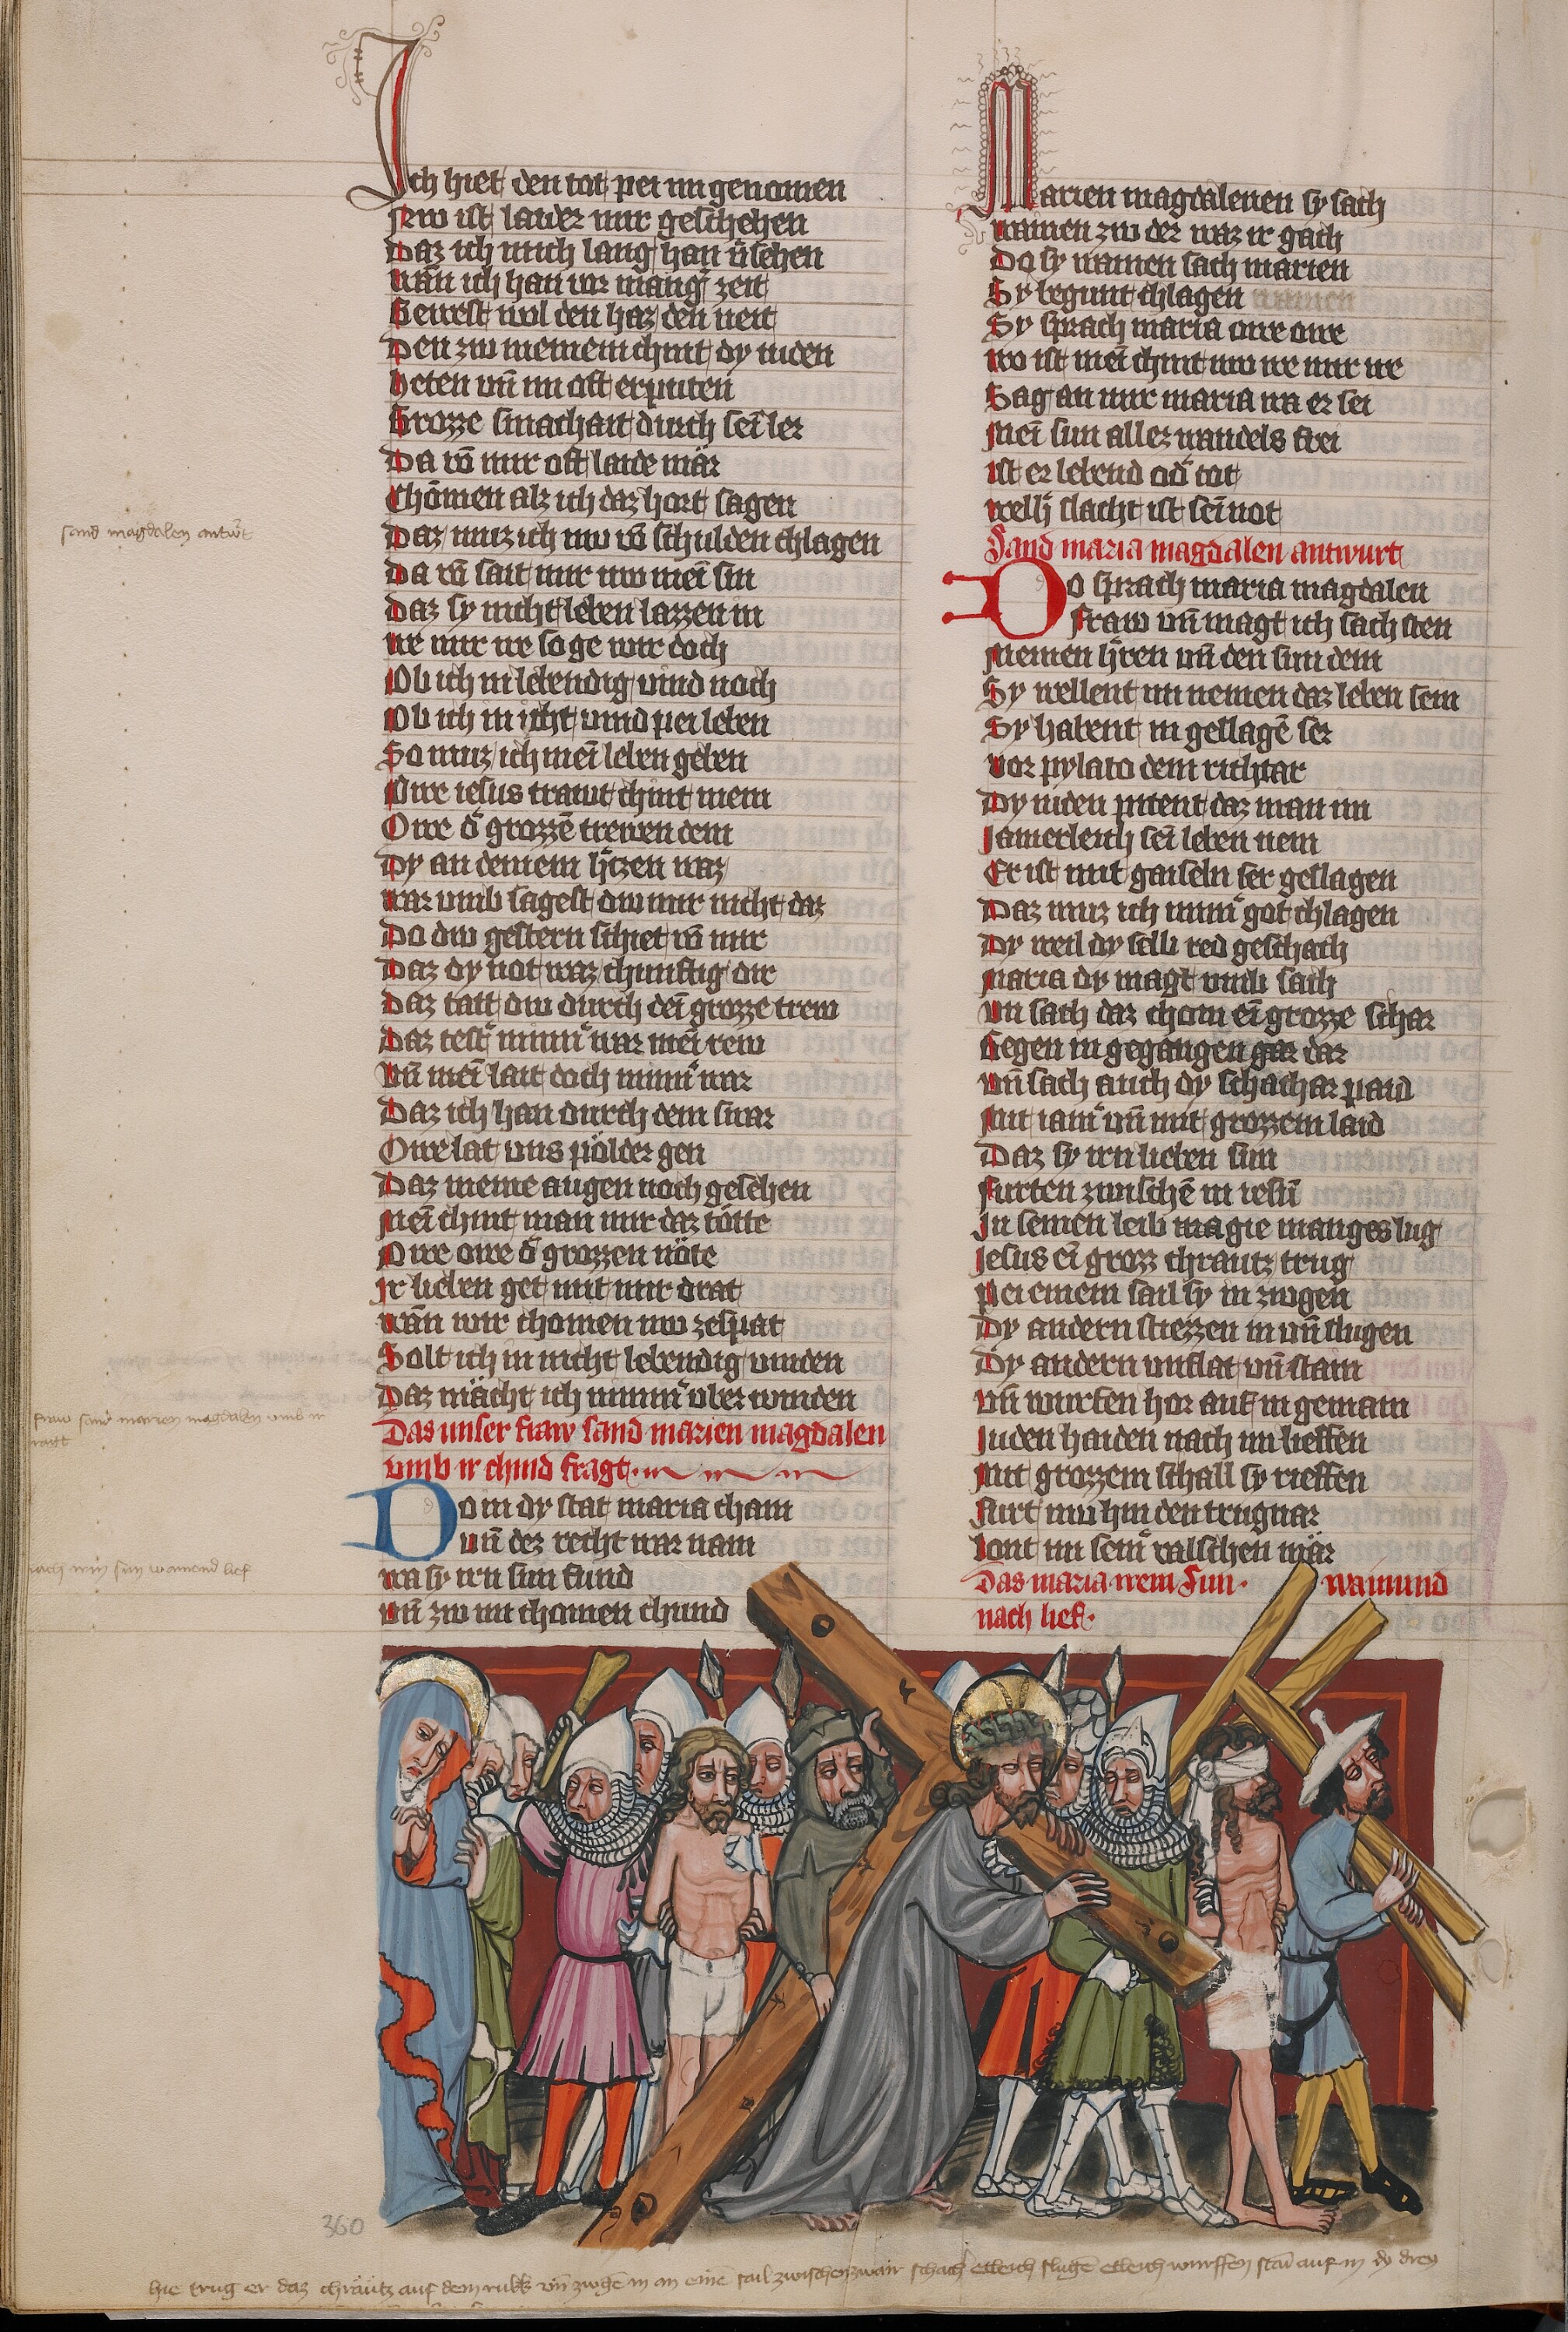 Ich hiet den tot pei im genomen
Irw ist laider mir geschehen
Daz ich mich lang han v̄sehen
Wan̄ ich han vor manḡ zeit
Gewest wol den haz den neit
Den zw meinem chint dy iuden
Heten vn̄ im oft erputen
Grozze smachait durch seī ler
Da vō mir oft laide mär
Chōmen alz ich daz hort sagen
Daz muz ich nw vō schulden chlagen
Da vō sait mir nw meī sin
Daz sy nicht leben lazzen in
We mir we so ge wir doch
Ob ich in lebendig vind noch
Ob ich in icht vind pei leben
So muz ich meī leben geben
Owe iesus trawt chint mein
Owe d̄ grozzē trewen dein
Dy an deinem h̄tzen waz
War vmb sagest dw mir nicht daz
Do dw gestern schiet vō mir
Daz dy not waz chunftig dir
Daz tatt dw durch deī grozze trew
Daz test nim̄ war meī rew
Vn̄ meī lait doch nim̄ war
Daz ich han durch dein swar
Owe lat vns pölder gen
Daz meine augen noch gesehen
Meī chint man mir daz tötte
Owe owe d̄ grozzen nöte
Ir lieben get mit mir drat
Wan̄ wir chomen nw ze spat
Solt ich in nicht lebendig vinden
Daz mächt ich nim̄ vber winden
Das unser fraw sand marien magdalen
vmb ir chind fragt
Do in dy stat maria cham
Vn̄ dez recht war nam
Wa sy irn sun fund
Vn̄ zw im chomen chund
Marien magdalenen sy sach
Wainen zw der waz ir gach
Do sy wainen sach marien
Sy begunt chlagen
Sy sprach maria owe owe
Wo ist meī chint nw we mir we
Sag an mir maria wa er sei
Meī sun aller wandels frei
Ist er lebend od̄ tot
Welh̄ slacht ist seī not
Sand maria magdalen antwurt
Do sprach maria magdalen
Fraw vn̄ magt ich sach sten
Meinen h̄ren vn̄ den sun dein
Sy wellent im nemen daz leben sein
Sy habent in geslagē ser
Vor pylato dem richtar
Dy iuden pitent daz man im
Jamerleich seī leben nem
Er ist mit gaiseln ser geslagen
Daz muz ich nim̄ got chlagen
Dy weil dy selb red geschach
Maria dy magt vmb sach
Vn sach daz chom eī grozze schar
Gegen in gegangen gar dar
Vn̄ sach auch dy schachar paid
Mit iam̄ vn̄ mit grozzem laid
Daz sy irn lieben sun
Furten zwischē in iesū
In seinen leib magie manges lug
Jesus eī groz chrautz trug
Pei einem sail sy in zwgen
Dy andern stiezzen in vn̄ slugen
Dy andern vnflat vn̄ stain
Vn̄ wurfen hor auf in gemain
Juden haiden nach im lieffen
Mit grozzem schall sy rieffen
Furt nw hin den trugnar
Lont im sein̄ valschen mär
Das maria irem Sun wainund
nach lief
sand magdalen antw̄t
fraw sand marien magdalen vmb ir
nach irm sun wainend lief
360
hie trug er daz chräutz auf dem rukk vn̄ zwgē in an eine sail zwischen zwair schach etleich slugē etleich wurffen staī auf in dy drey